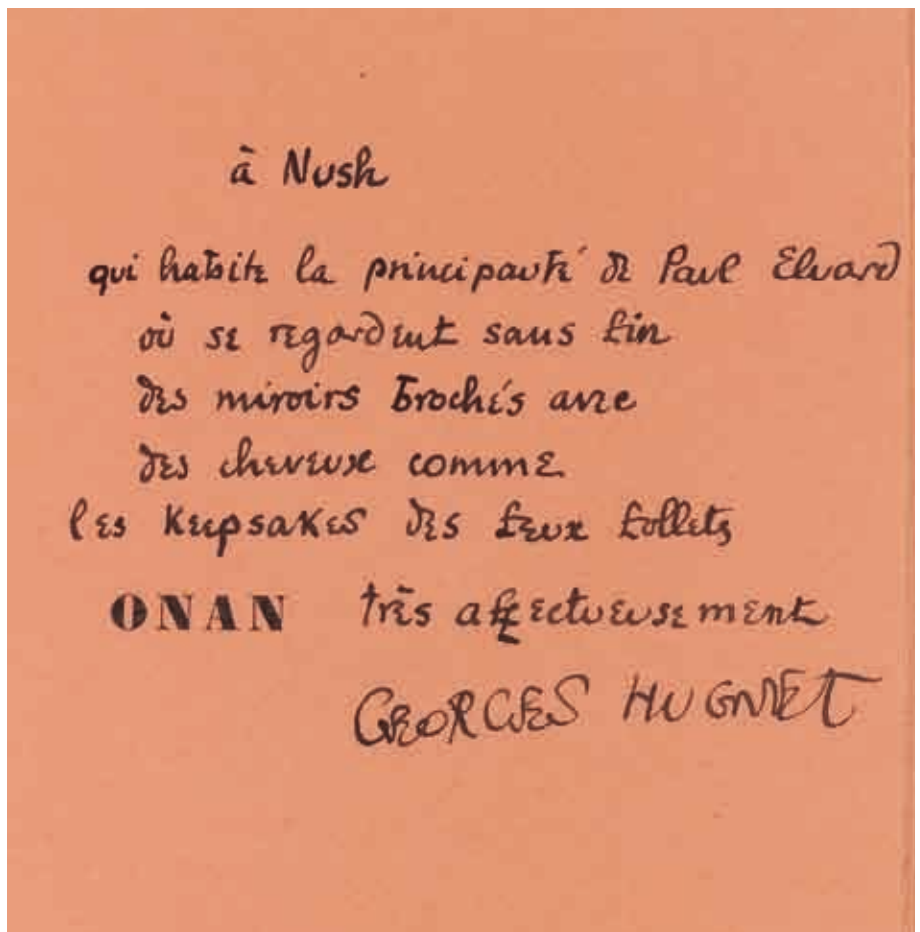 à Nush
qui habite la principauté de Paul Eluard
où se regardent sans fin
des miroirs brochés avec
des cheveux comme
les keepsakes des feux follets
ONAN très affectueusement
GEORGES HUGNET